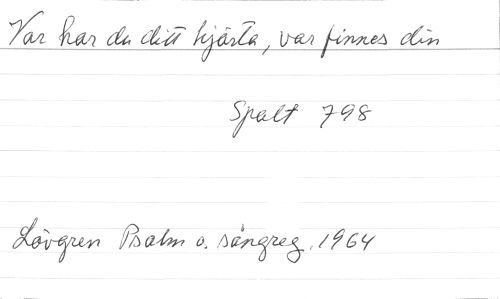 Var har du ditt hjärta, var finnes din
Spalt 798
Lövgren Psalm o. sångreg. 1964